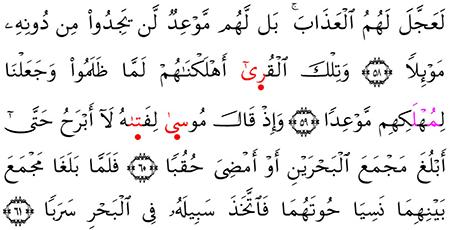 لَعَجَّلَ لَهُمُ ٱلۡعَذَابَۚ بَل لَّهُم مَّوۡعِدٞ لَّن يَجِدُواْ مِن دُونِهِۦ
مَوۡئِلٗا ٥٨ وَتِلۡكَ ٱلۡقُرَىٰٓ أَهۡلَكۡنَٰهُمۡ لَمَّا ظَلَمُواْ وَجَعَلۡنَا
لِمُهۡلَكِهِم مَّوۡعِدٗا ٥٩ وَإِذۡ قَالَ مُوسَىٰ لِفَتَىٰهُ لَآ أَبۡرَحُ حَتَّىٰٓ
أَبۡلُغَ مَجۡمَعَ ٱلۡبَحۡرَيۡنِ أَوۡ أَمۡضِيَ حُقُبٗا ٦٠ فَلَمَّا بَلَغَا مَجۡمَعَ
بَيۡنِهِمَا نَسِيَا حُوتَهُمَا فَٱتَّخَذَ سَبِيلَهُۥ فِي ٱلۡبَحۡرِ سَرَبٗا ٦١